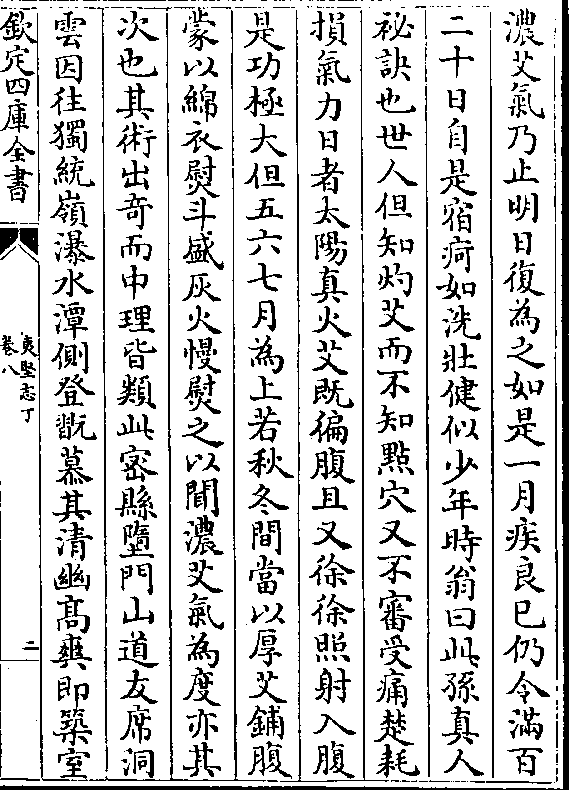 濃艾氣乃止明日復為之如是一月疾良已仍令滿百
二十日自是宿疴如洗壯健似少年時翁曰此孫真人
祕訣也世人但知灼艾而不知點穴又不審受痛楚耗
損氣力日者太陽真火艾既徧腹且又徐徐照射入腹
是功極大但五六七月為上若秋冬間當以厚艾鋪腹
蒙以綿衣熨斗盛灰火慢熨之以聞濃艾氣為度亦其
次也其術出奇而中理皆類此密縣墮門山道友席洞
雲因往獨統嶺瀑水潭側登翫慕其清幽髙爽即築室
欽定四庫全書
夷堅志丁
卷八
二